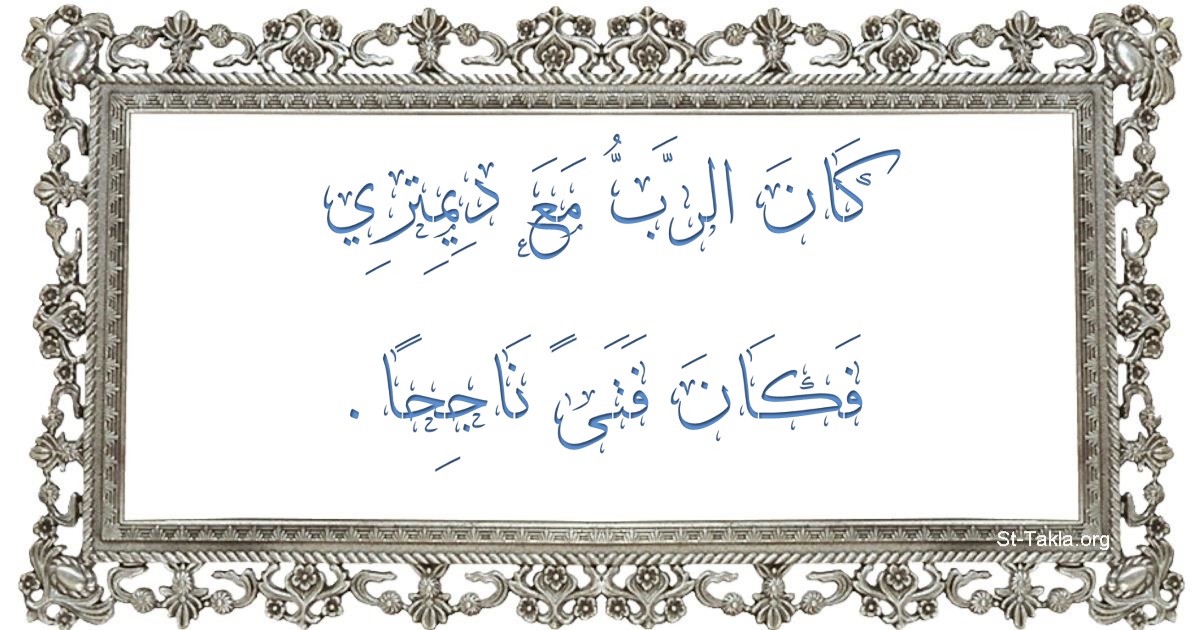 كَانَ الرَّبُّ مَعَ دِيمِتِرِي
فَكَانَ فَتَىً نَاجِحًا.
St-Takla.org